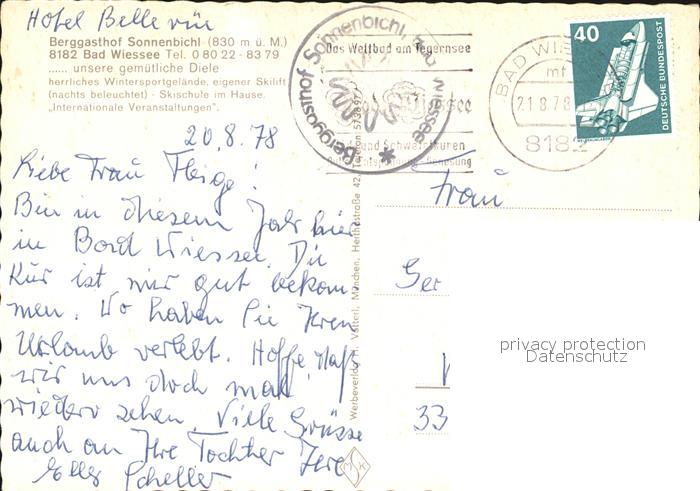 Hotel Belle vue
Berggasthof Sonnenbichl (830 m ü. M.)
8182 Bad Wiessee Tel. 0 80 22 - 83 79
...... unsere gemütliche Diele
herrliches Wintersportgelände, eigener Skilift
(nachts beleuchtet) - Skischule im Hause.
„Internationale Veranstaltungen".
20.8.78
Liebe Frau Fleige!
Bin in diesem Jahr hier
in Bad Wiessee. Die
Kur ist mir gut bekom
men. Wo haben Sie Ihren
Urlaub verlebt. Hoffe daß
wir uns doch mal
wieder sehen. Viele Grüsse
auch an Ihre Tochter Ihre
Elly Scheller
Berggasthof Sonnenbichl, Bad Wiessee
Telefon
Das Weltbad am Tegernsee
Bad Wiessee
BAD WIES
21.8.78
8182
40
DEUTSCHE BUNDESPOST
Werbeverlag H. Vasterl, München, Herthastraße 42, Telefon 573897
MK
Frau
Ger
33
privacy protection
Datenschutz